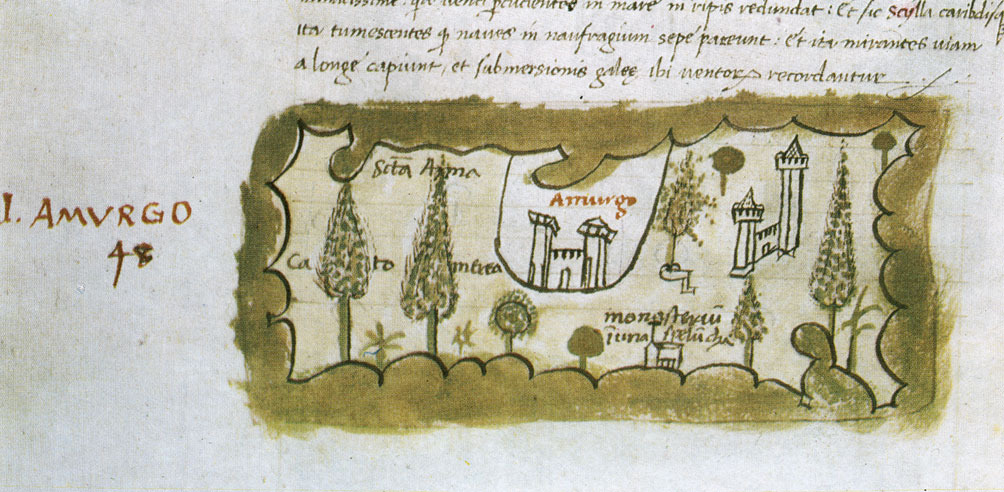 que venti pcucientes in mare in ripis redundat: Et sic Scylla caribdis
ita tumescentes q naves in naufragium sepe pareunt: Et ita mirantes viam
a longe capiunt, et submersionis galeę ibi ventoꝝ recordantur
I. AMVRGO
48
Sctā Anna
Amurgo
Cato merea
monosteriū
ī una spelūcha